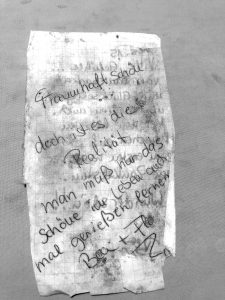 Traumhaft schön
...
doch ist es die
Realität
man muß nur das
schöne im Leben auch
mal genießen lernen